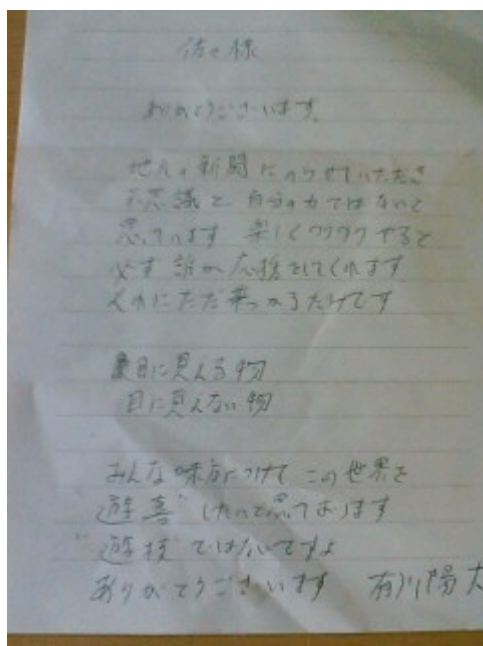 佐々様
ありがとうございます。
地元の新聞にのらせていただき
不思議と自分の力ではないと
思っています 楽しくワクワクやると
必ず誰か応援をしてくれます
それにただ乗っかるだけです
目に見える物
目に見えない物
みんな味方につけて この世界を
遊喜"したいと思っております
"遊技"ではないですよ
ありがとうございます 有川陽大